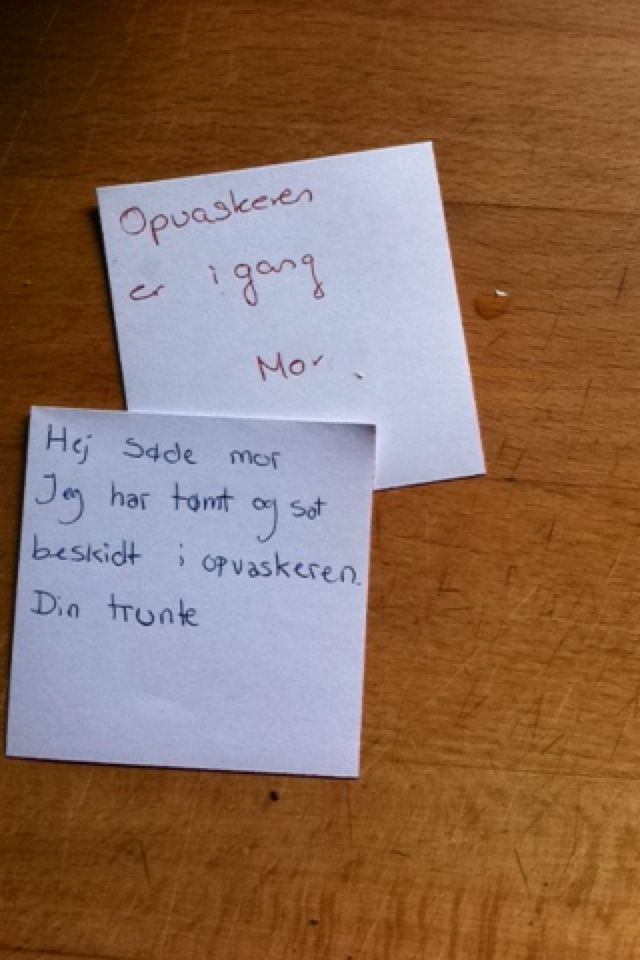 Opvaskeren
er i gang
Mor.
Hej søde mor
Jeg har tømt og sat
beskidt i opvaskeren.
Din trunte